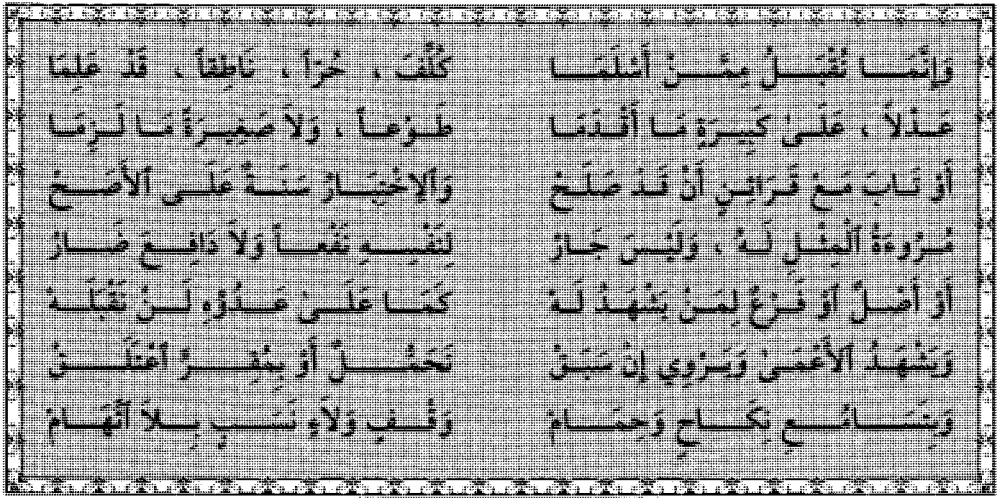 وَإِنَّمَا تُقْبَلُ مِمَّنْ أَسْلَمَا كُلِّفَ ، حُرّاً ، نَاطِقاً ، قَدْ عَلِمَا
عَدْلاً ، عَلَىٰ كَبِيرَةٍ مَا أَقْدَمَا طَوْعاً ، وَلاَ صَغِيرَةً مَا لَزِمَا
أَوْ تَابَ مَعْ قَرَائِنٍ أَنْ قَدْ صَلَحْ وَٱلاِخْتِبَارُ سَنَةٌ عَلَى ٱلأَصَحْ
مُرُوءَةُ ٱلْمِثْلِ لَهُ ، وَلَيْسَ جَارْ لِنَفْسِهِ نَفْعاً وَلاَ دَافِعَ ضَارْ
أَوْ أَصْلٌ ٱوْ فَرْعٌ لِمَنْ يَشْهَدُ لَهْ كَمَا عَلَىٰ عَدُوِّهِ لَنْ نَقْبَلَهْ
وَيَشْهَدُ ٱلأَعْمَىٰ وَيَرْوِي إِنْ سَبَقْ تَحَمُّلٌ أَوْ بِمُقِرٍّ ٱعْتَلَقْ
وَبِتَسَامُعٍ نِكَاحٍ وَحِمَامْ وَقْفٍ وَلاَءٍ نَسَبٍ بِلاَ ٱتِّهَامْ